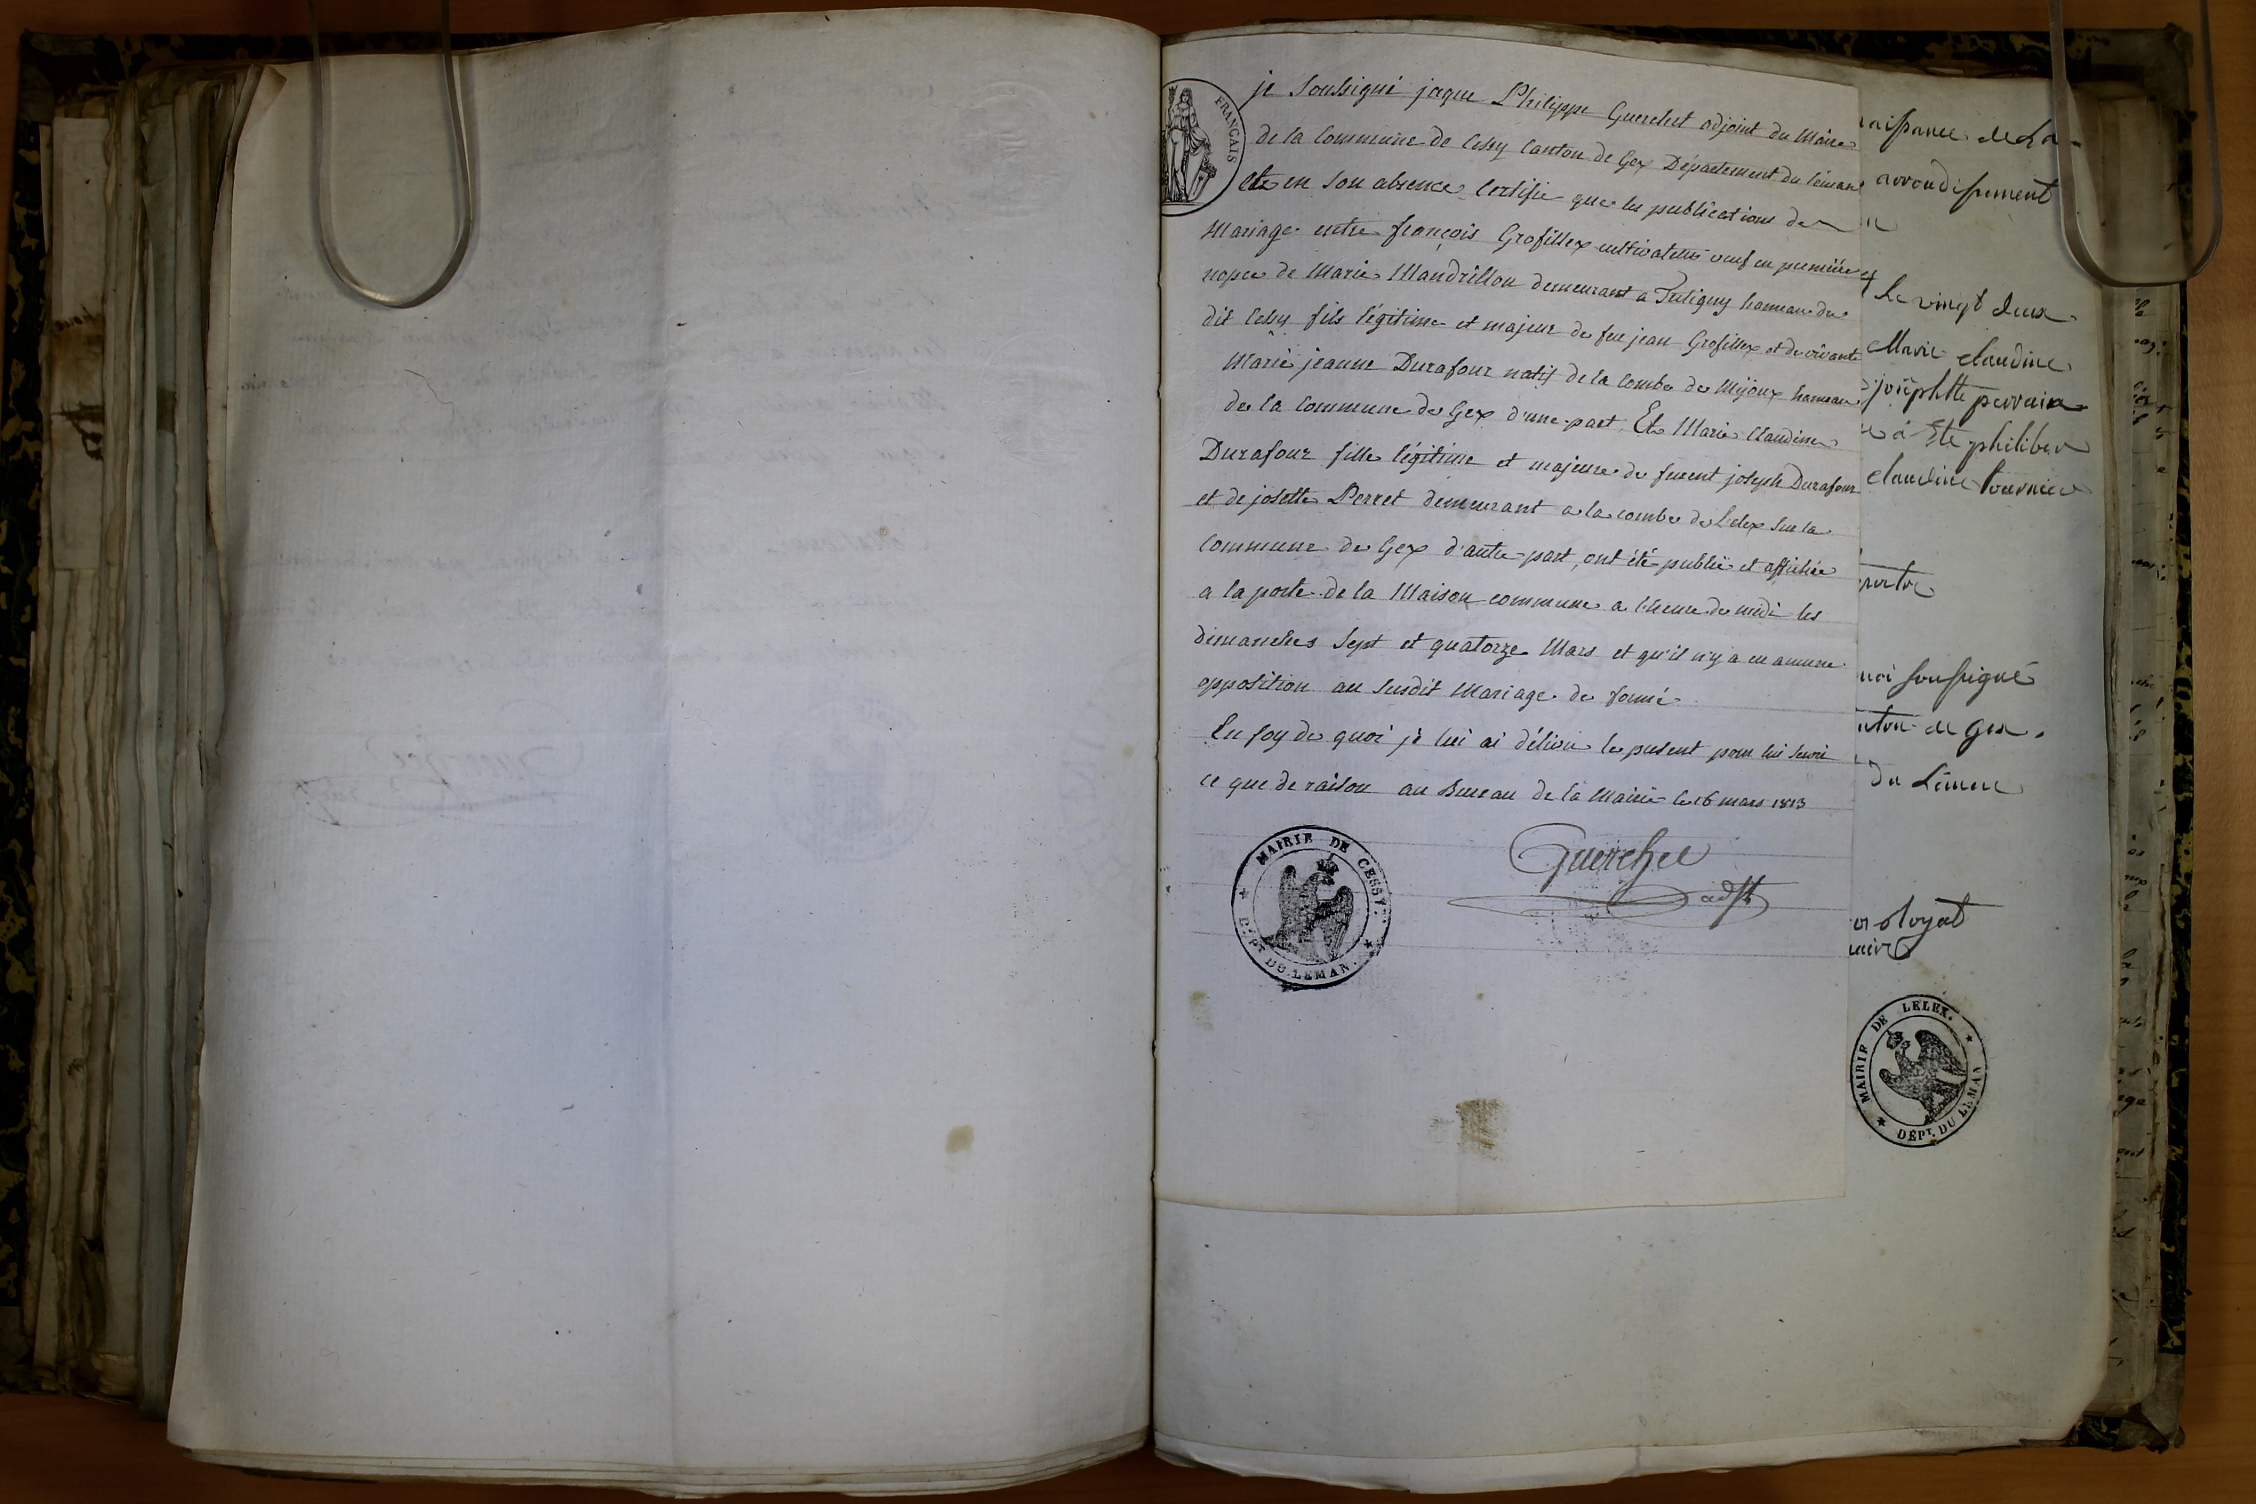 FRANÇAIS
je soussigné jaque Philippe Guerchet adjoint du Maire
de la commune de Cessy canton de Gex Département du Léman
et en son absence certifie que les publications de
Mariage entre françois Grosfillex cultivateur veuf en premiere
nopce de Marie Mandrillon demeurant a Tutigny hameau du
dit Cessy fils légitime et majeur de feu jean Grosfillex et de vivante
Marie jeanne Durafour natif de la combe de Mijoux hameau
de la commune de Gex d'une part Et Marie Claudine
Durafour fille légitime et majeure de furent joseph Durafour
et de josette Perret demeurant a la combe de Lelex sur la
commune de Gex d'autre part, ont été publié et affichée
a la porte de la Maison commune a l'heure de midi les
dimanches sept et quatorze Mars et qu'il n'y a eu aucune
opposition au susdit Mariage de formé
En foy de quoi je lui ai délivré le present pour lui servir
ce que de raison au Bureau de la Mairie le 16 mars 1813
Guerchet
adjt
MAIRIE DE CESSY.
DÉPT. DU LEMAN.
naissance de La
arrondissement
le vingt deux
Marie claudine
josephtte perruin
a Ete philiber
claudine fournier
moi soussigné
canton de gex.
du Léman
MAIRIE DE LELEX.
DÉPT. DU LEMAN